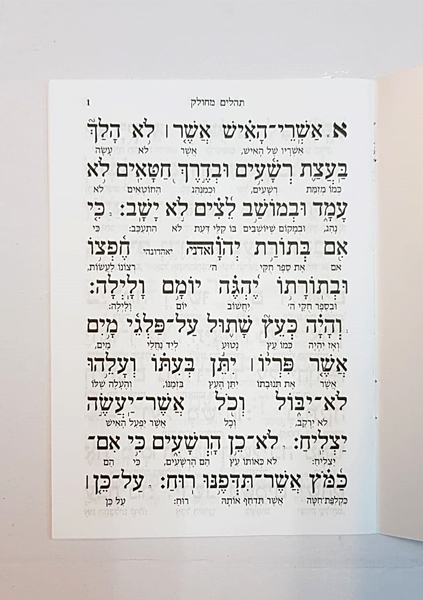 תהלים מחולק 1
א. אַשְֽׁרֵי־הָאִ֗ישׁ אֲשֶׁ֤ר׀ לֹ֥א הָלַךְ֮
אַשְׁרָיו שֶׁל הָאִישׁ, אֲשֶׁר לֹא עָשָׂה
בַּעֲצַ֪ת רְשָׁ֫עִ֥ים וּבְדֶ֣רֶךְ חַ֭טָּאִים לֹ֥א
כְּמוֹ מְזִמַּת רְשָׁעִים, וּכְמִנְהַג הַחוֹטְאִים לֹא
עָמָ֑ד וּבְמוֹשַׁ֥ב לֵ֝צִ֗ים לֹ֣א יָשָֽׁב׃ כִּ֤י
נָהַג, וּבִמְקוֹם שֶׁיּוֹשְׁבִים בּוֹ קַלֵּי דַּעַת לֹא הִתְעַכֵּב: כִּי
אִ֥ם בְּתוֹרַ֥ת יְהוָ֗ה ואדני יאהדונהי חֶ֫פְצ֥וֹ
אִם אֶת סֵפֶר חֻקֵּי ה' רְצוֹנוֹ לַעֲשׂוֹת,
וּֽבְתוֹרָת֥וֹ יֶהְגֶּ֗ה יוֹמָ֥ם וָלָֽיְלָה׃
וּבְסֵפֶר חֻקֵּי ה' יַחְשׁוֹב יוֹם וָלַיְלָה:
וְֽהָיָ֗ה כְּעֵץ֮ שָׁת֪וּל עַֽל־פַּלְגֵ֫י מָ֥יִם
וְאָז יִהְיֶה כְּמוֹ עֵץ נָטוּעַ לְיַד נַחֲלֵי מַיִם,
אֲשֶׁ֤ר פִּרְי֨וֹ׀ יִתֵּ֬ן בְּעִתּ֗וֹ וְעָלֵ֥הוּ
אֲשֶׁר אֶת תְּנוּבָתוֹ יִתֵּן הָעֵץ בִּזְמַנּוֹ, וְהֶעָלֶה שֶׁלּוֹ
לֹֽא־יִבּ֑וֹל וְכֹ֖ל אֲשֶׁר־יַעֲשֶׂ֣ה
לֹא יִרְקַב, וְכָל אֲשֶׁר יִפְעַל הָאִישׁ
יַצְלִֽיחַ׃ לֹא־כֵ֥ן הָרְשָׁעִ֑ים כִּ֥י אִם־
יַצְלִיחַ: לֹא כְּאוֹתוֹ עֵץ הֵם הָרְשָׁעִים, כִּי הֵם
כַּ֝מֹּ֗ץ אֲֽשֶׁר־תִּדְּפֶ֥נּוּ רֽוּחַ׃ עַל־כֵּ֤ן׀
כִּקְלִפַּת־חִטָּה אֲשֶׁר תִּדְחֹף אוֹתָהּ רוּחַ: עַל כֵּן